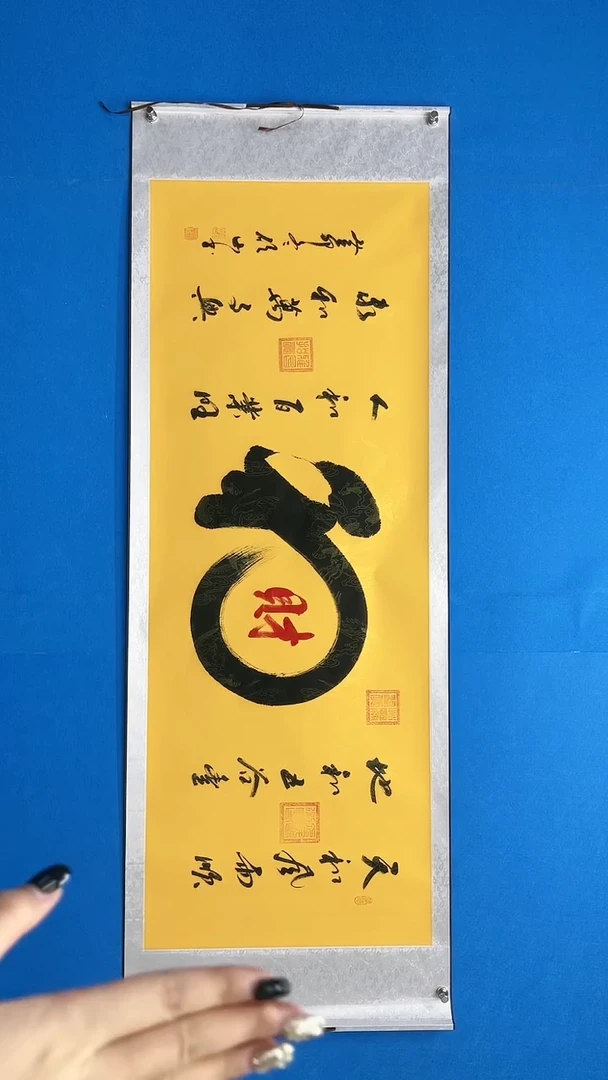 天和風雨順
地和五谷豐
財
人和百業旺
家和萬事興